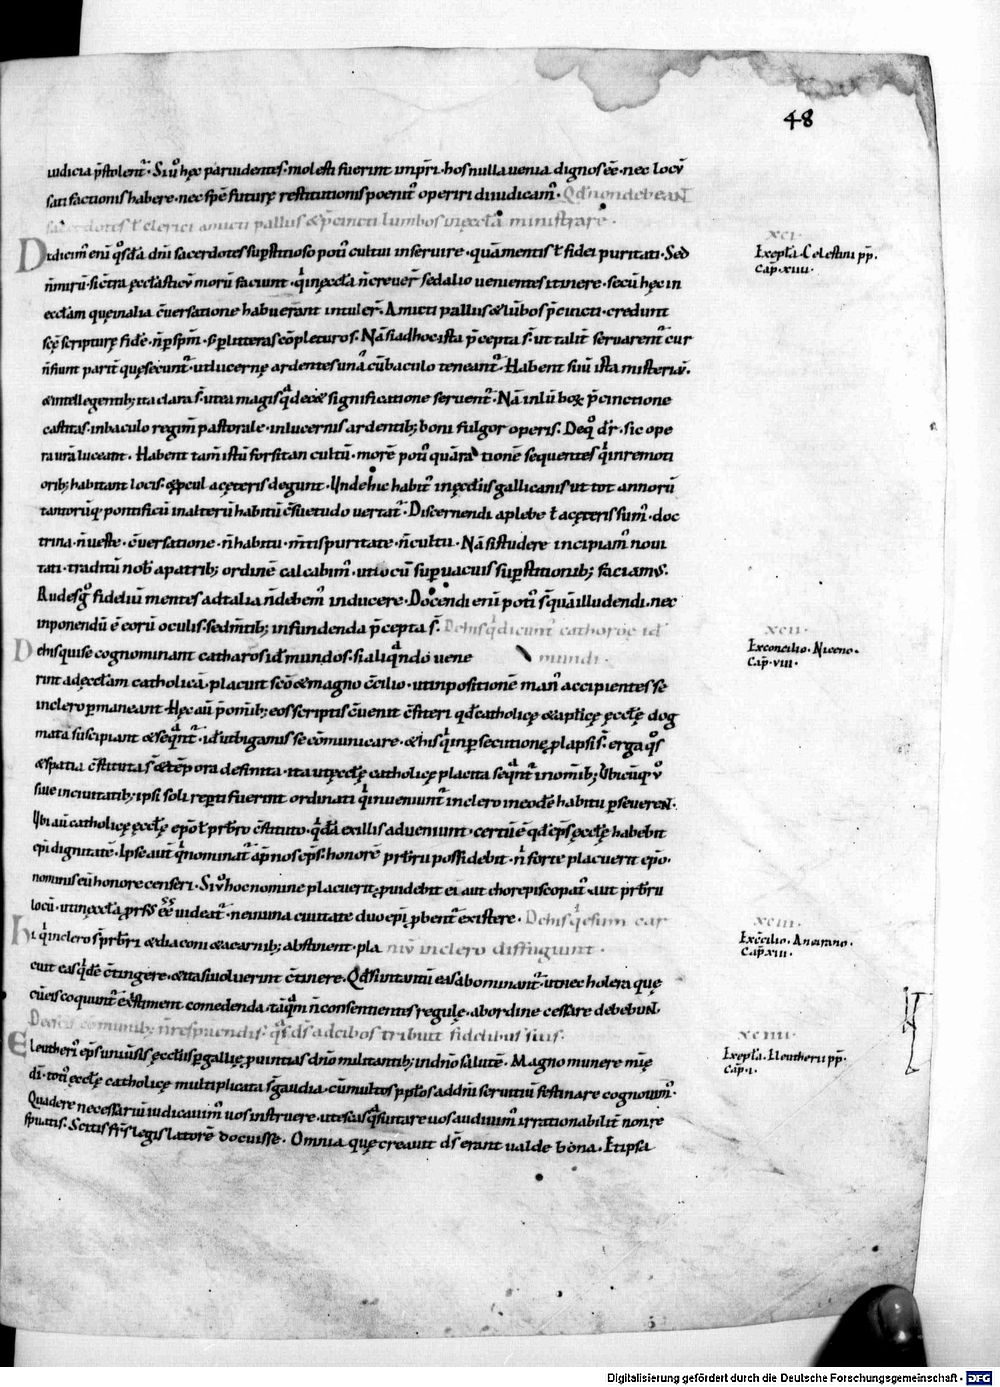 48
iudicia p̄stolent᷑. Siu͛o hęc paruidentes. molesti fuerint inpr̄i. hos nulla uenia dignos eē. nec locū
satisfactionis habere. nec spē futurę restitutionis poenit͛ operiri diiudicam͛. Qd̄ non debeant
sacerdotes ł clerici amicti pallus & p̄cincti lumbos in ęccła ministrare.
Didicim͛ eni q͛sdā dn̄i sacerdotes sup̄stitioso poti͛ cultui inseruire. quā mentis ł fidei puritati. Sed
xci.
Ex epła Celestini pp.
Cap̄. xiiii.
ęccłam quę in alia c̄uersatione habuerant intuler̄. Amicti pallus & lūbos p̄cincti. credunt
scę scripturę fidē. n̄ p sp̄m. s; p litteras cōpleturos. Nā si ad hoc ista p̄cepta s̄. ut talit͛ seruarent᷑ cur
n̄ fiunt parit͛ quę secunt᷑. ut lucernę ardentes unā cū baculo teneant᷑. Habent suū ista misteriū.
& intellegentib; ita clara s̄. ut ea magis q̄ decet significatione seruent᷑. Nā in lūboꝝ p̄cinctione
castitas. in baculo regim̄ pastorale. in lucernis ardentib; boni fulgor operis. De q͛o dr̄. sic ope
ra ur̄a luceant. Habent tam̄ istū forsitan cultū. morē poti͛ quā rationē sequentes qⁱ in remoti
orib; habitant locis. & p̄cul a cęteris degunt. Unde hic habit͛ in ęccłiis gallicanis ut tot annorū
tantorūq; pontificū in alterū habitū c̄suetudo uertat᷑. Discernendi a plebe ł a cęteris sum͛. doc
trina. n̄ ueste. c̄uersatione. n̄ habitu. m̄tis puritate. n̄ cultu. Nā si studere incipiam͛ noui
tati. traditū nob̄ a patrib; ordinē calcabim͛. ut locū sup̄uacuis sup̄stitionib; faciam͛.
Rudes g͛o fidelium mentes ad talia n̄ debem͛ inducere. Docendi eni poti͛ s̄ quā illudendi. nec
inponendū ē eorū oculis. sed m̄tib; infundenda p̄cepta s̄. De his qⁱ dicunt᷑ catharoe id
De his qui se cognominant catharos id ē mundos. si aliq̄ndo uene mundi.
xcii.
Ex concilio Niceno.
Cap̄. viii.
rint ad ęccłam catholicā. placuit scō & magno c̄cilio. ut inpositionē man͛ accipientes se
in clero p̄maneant. Hęc aū p̄ omīb; eos scriptis c̄uenit c̄fiteri qd̄ catholicę & aplicę ęccłę dog
mata suscipiant & seq̄nt᷑. id ē ut bigamis se cōmunicare. & his qⁱ in p̄secutionę plapsi s̄. erga q͛s
& spatia c̄stituta s̄ & tēpora definita. ita ut ęccłę catholicę placita seq̄nt᷑ in omīb; Ubicūq; u͛o
siue in ciuitatib; ipsi soli rep̄ti fuerint ordinati qⁱ inueniunt᷑ in clero in eodē habitu p̄seuerent.
Ubi aū catholicę ęccłę ep̄o ł pr̄bro c̄stituto. qⁱdā ex illis adueniunt. certū ē qd̄ ep̄s ęccłę habebit
ep̄i dignitatē. Ipse aut̄ qⁱ nominat᷑ ap̄ nos ep̄s. honorē pr̄bru possidebit. nⁱ forte placuerit ep̄o.
nominis eū honore censeri. Siu͛ hoc nomine placuerit. puidebit ei aut chorepiscopat͛. aut pr̄bru
locū. ut in ęccła prsus eē uideat᷑. ne in una ciuitate duo ep̄i p̄bent᷑ existere. De his qⁱ esum car
Hi qⁱ in clero s̄ pr̄bri & diaconi & a carnib; abstinent. pla niū in clero diffugiunt.
xciii.
Ex c̄cilio Ancirano.
Cap̄. xiii.
cuit eas qⁱdē c̄tingere. & ita si uoluerint c̄tinere. Qd̄ si in tantū eas abominant᷑. ut nec holera quę
cū eis coquunt᷑ existiment comedenda. tāq̄m n̄ consentientes regulę. ab ordine cessare debebunt.
De escis comunib; n̄ respuendis. q͛s ds̄ ad cibos tribuit fidelibus suis.
Eleutheri͛ ep̄s uniuersis ęccłiis p gallię puintias dn̄o militantib; in dn̄o salutē. Magno munere mīę
xciiii.
Ex epła Eleutherii pp.
Cap̄. i.
di. toti͛ ęccłę catholicę multiplicata s̄ gaudia. cū multos ppłos ad dn̄i seruitiū festinare cognouim͛.
Quadere necessariū iudicauim͛ uos instruere. ut escas q̄s uitare uos audiuim͛ irrationabilit͛ non re
spuatis. Scitis fr̄s legislatorē docuisse. Omnia quę creauit ds̄ erant ualde bona. Et ipsa
Digitalisierung gefördert durch die Deutsche Forschungsgemeinschaft - DFG